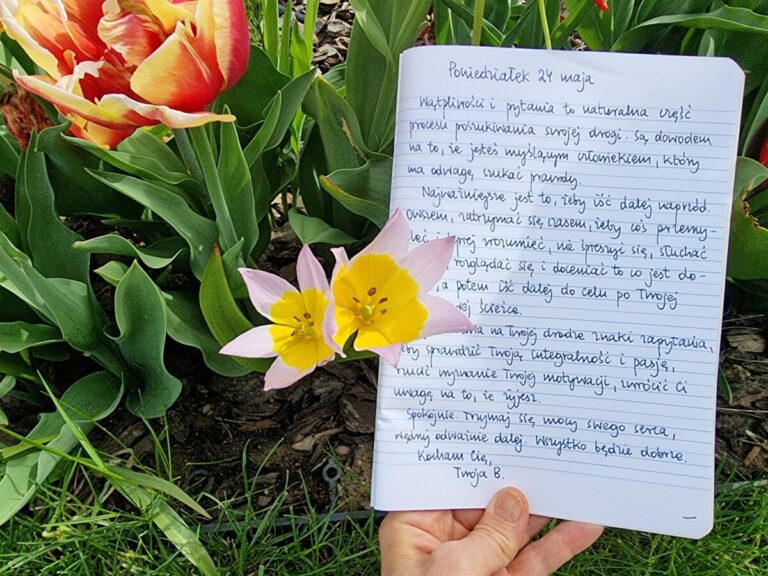 Poniedziałek 24 maja
Wątpliwości i pytania to naturalna część
procesu poszukiwania swojej drogi. Są dowodem
na to, że jesteś myślącym człowiekiem, który
ma odwagę szukać prawdy.
Najważniejsze jest to, żeby iść dalej naprzód.
Owszem, zatrzymać się czasem, żeby coś przemy-
zrozumieć, nie śpieszyć się, słuchać
rozglądać się i doceniać to co jest do-
, a potem iść dalej do celu po Twojej
ścieżce.
na Twojej drodze znaki zapytania,
by sprawdzić Twoją integralność i pasję,
wyzwanie Twojej motywacji, zwrócić Ci
uwagę na to, że żyjesz.
Spokojnie. Trzymaj się mocy swego serca,
wędruj odważnie dalej. Wszystko będzie dobrze.
Kocham Cię,
Twoja B.